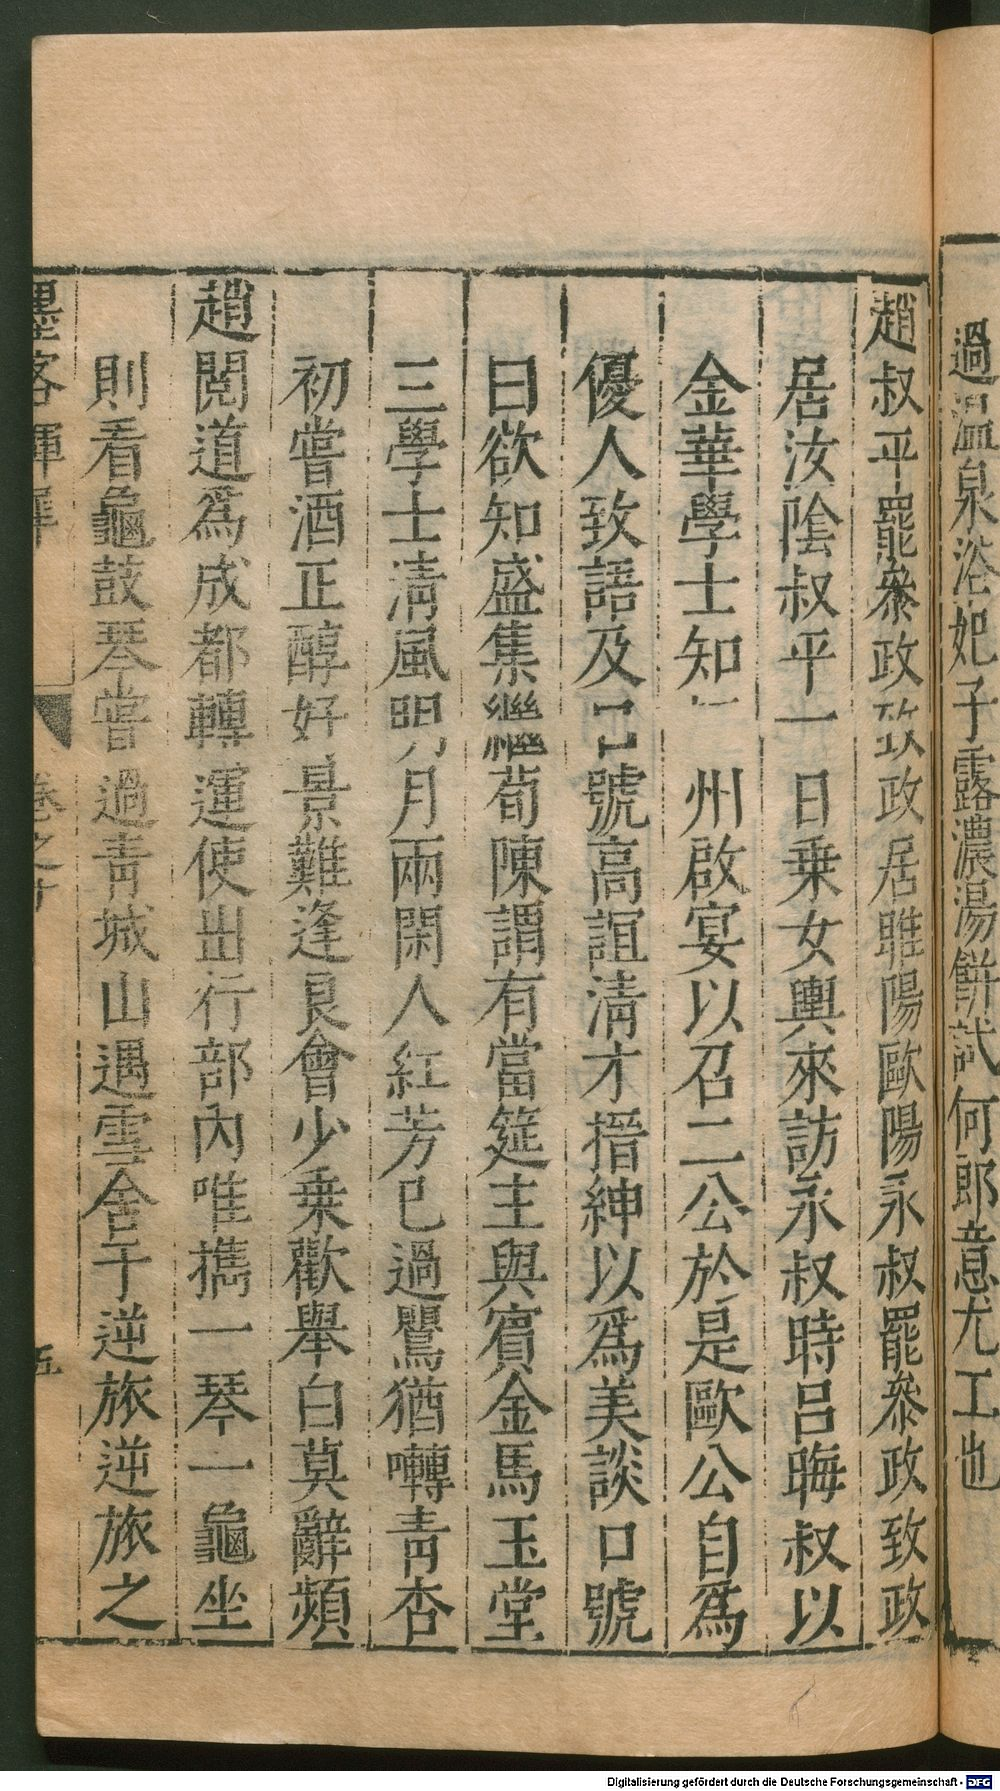 過温泉浴妃子露濃湯餅試何郎意尤工也
趙叔平罷叅政致政居睢陽歐陽永叔罷叅政致政
居汝陰叔平一日乗女輿來訪永叔時呂晦叔以
金華學士知 州啟宴以召二公於是歐公自爲
優人致語及口號高誼清才搢紳以爲美談口號
曰欲知盛集繼荀陳謂有當筵主與賓金馬玉堂
三學士清風明月兩閑人紅芳已過鸎猶囀青杏
初嘗酒正醇好景難逢良會少乗歡舉白莫辭頻
趙閱道爲成都轉運使出行部內唯攜一琴一龜坐
則看龜鼓琴嘗過青城山遇雪舍于逆旅逆旅之
墨客揮犀 卷之十 五
Digitalisierung gefördert durch die Deutsche Forschungsgemeinschaft - DFG